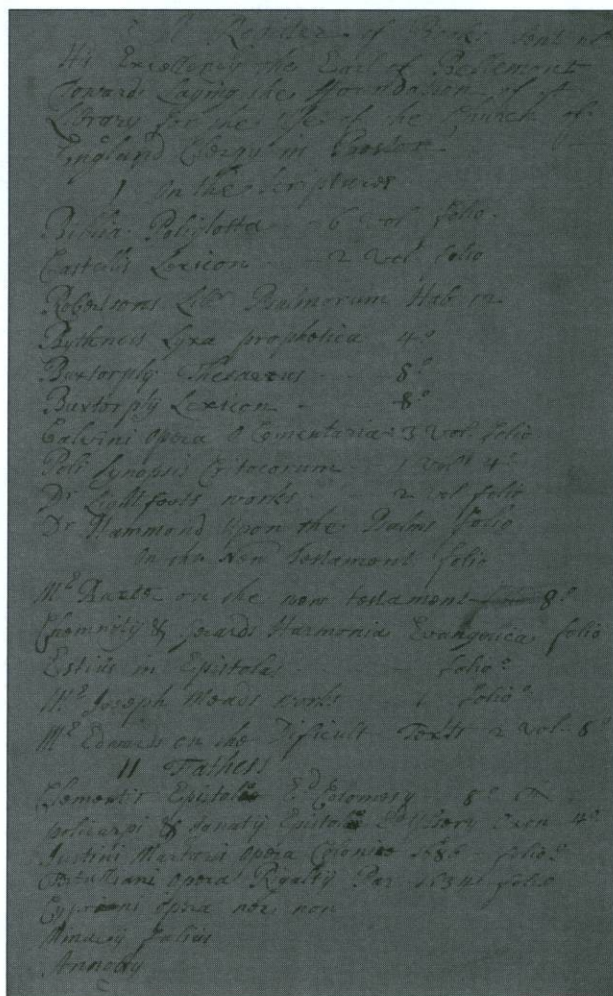 A Register of Books sent wth
His Excellency the Earl of Bellemont
Towards Laying the Foundation of A
Library for the Use of the Church of
England Clergy in Boston
I On the Scriptures
Biblia Poliglotta 6 vol folio
Castelli Lexicon 2 vol folio
Robertsons Psalmorum Hab 12
Bythners Lyra prophetica 4o
Buxtorply Thesaurus 8o
Buxtorply Lexicon 8o
Calvini Opera Comentaria 3 vol folio
Poli Synopsis 4o
Dr Lightfoots works 2 vol folio
Dr Hammond upon the Psalms folio
On the New Testament folio
Mr on the new testament 8o
& Harmonia Evangelica folio
Estius in Epistolas folio
Mr Joseph Meads works 1 folio
Mr Edwards on the Dificult Texts 2 vol 8
II Fathers
Clementis Epistola 8o
& Epistola 4o
Justini Martiri Opera Colonie 1686 folio
Tertulliani Opera Par 1634 folio
Cypriani Opera